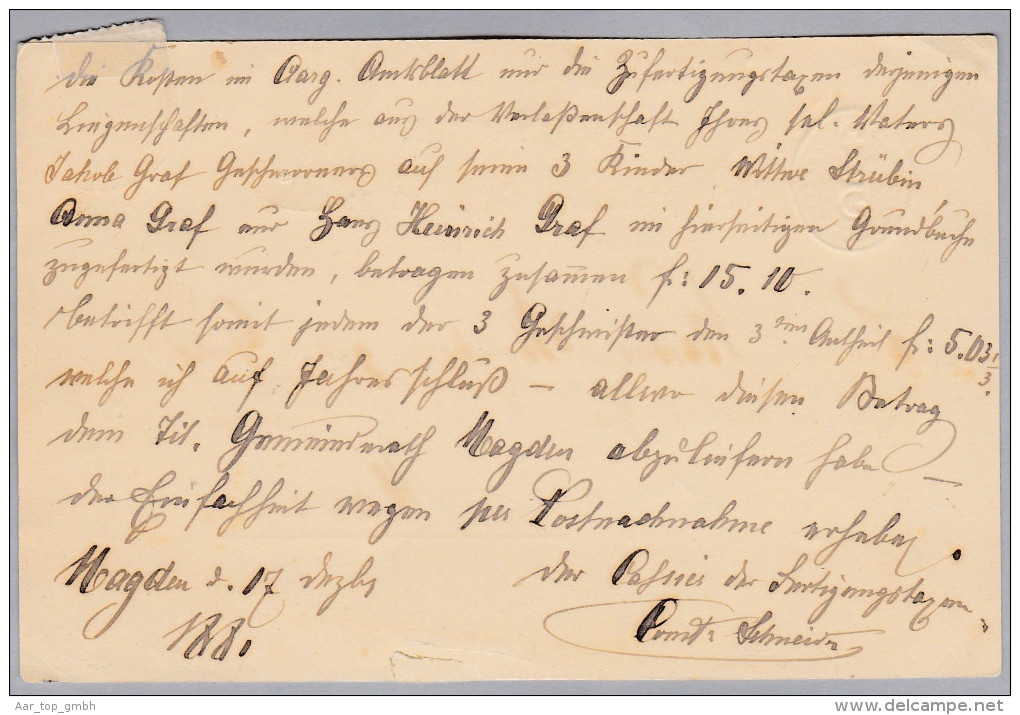 die Kosten im Aarg. Amtsblatt und die Zufertigungstaxen derjenigen
Liegenschaften, welche aus der Verlaßenschaft Ihres sel. Vaters
Jakob Graf Geschworners auf seine 3 Kinder Wittwe Strübin
Anna Graf und Hans Heinrich Graf im hierseitigen Grundbuche
zugefertigt wurden, betragen zusamen fr: 15. 10.
betrifft somit jedem der 3 Geschwister den 3ten Antheil fr: 5.03 1/3.
welche ich auf Jahresschluß – allwo diesen Betrag
dem Tit. Gemeinderath Magden abzuliefern habe –
der Einfachheit wegen per Postnachnahme erhebe.
Magden d. 17 Dezbr der Cassier der Fertigungstaxen
188. Schneider
Aar_top_gmbh
delcampe.net